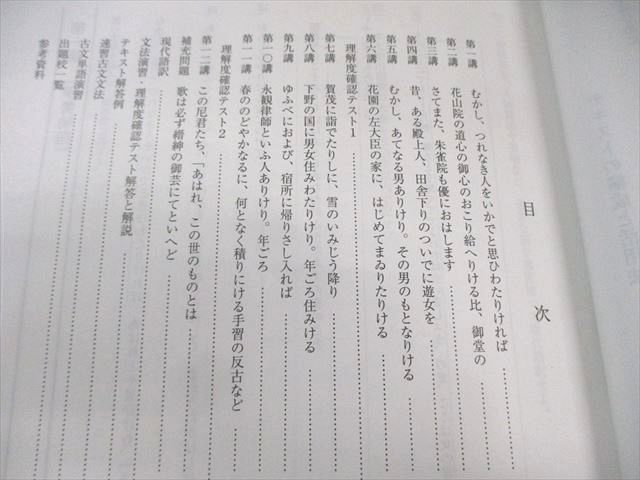 目次
第一講 むかし、つれなき人をいかでと思ひわたりければ
第二講 花山院の道心の御心のおこり給へりける比、御堂の
第三講 さてまた、朱雀院も優におはします
第四講 昔、ある殿上人、田舎下りのついでに遊女を
第五講 むかし、あてなる男ありけり。その男のもとなりける
第六講 花園の左大臣の家に、はじめてまゐりたりける
理解度確認テスト1
第七講 賀茂に詣でたりしに、雪のいみじう降り
第八講 下野の国に男女住みわたりけり。年ごろ住みける
第九講 ゆふべにおよび、宿所に帰りさし入れば
第一〇講 永観律師といふ人ありけり。年ごろ
第一一講 春ののどやかなるに、何となく積りにける手習の反古など
理解度確認テスト2
第一二講 この尼君たち、「あはれ、この世のものとは
補充問題 歌は必ず縉紳の御芸にてといへど
現代語訳
文法演習・理解度確認テスト解答と解説
テキスト解答例
速習古文文法
古文単語演習
出題校一覧
参考資料